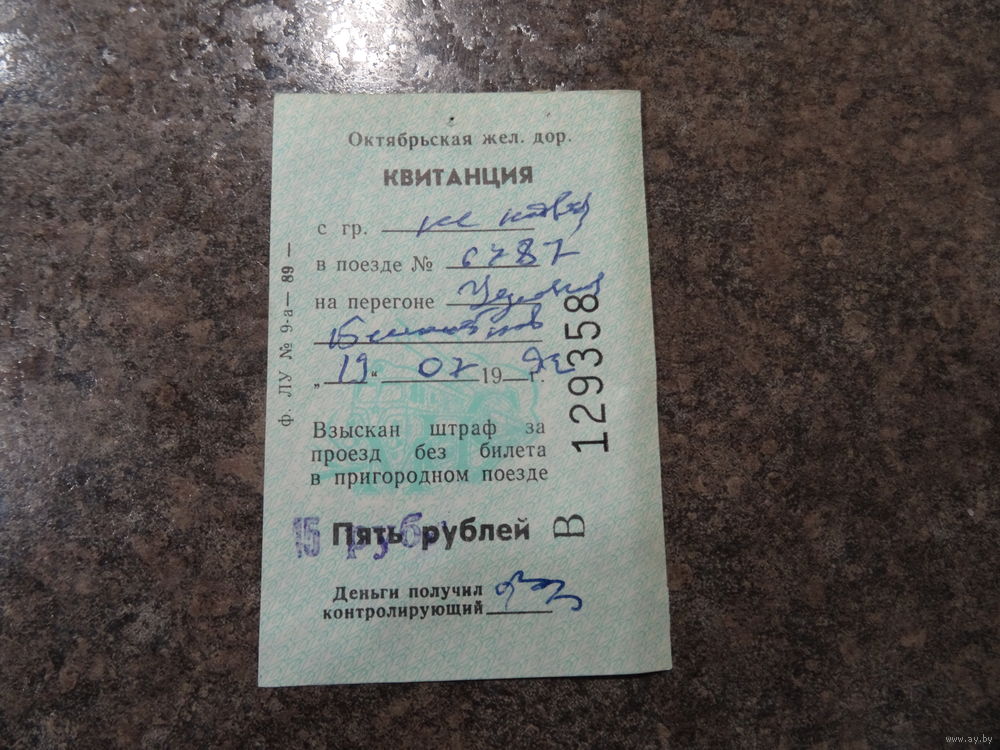 Октябрьская жел. дор.
КВИТАНЦИЯ
с гр.
в поезде № 6787
на перегоне
„19“ 07 1992 г.
Взыскан штраф за
проезд без билета
в пригородном поезде
Пять рублей
15 руб.
Деньги получил
контролирующий
ф. ЛУ № 9-а— 89 —
В 129358
www.ay.by